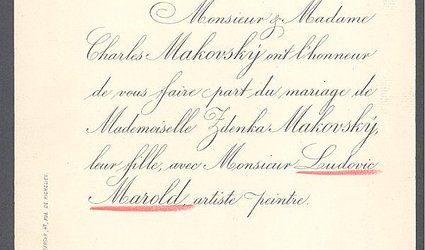 Monsieur & Madame
Charles Makovský ont l'honneur
de vous faire part du mariage de
Mademoiselle Zdenka Makovský,
leur fille, avec Monsieur Ludovic
Marold, artiste peintre.
47, RUE DE RICHELIEU